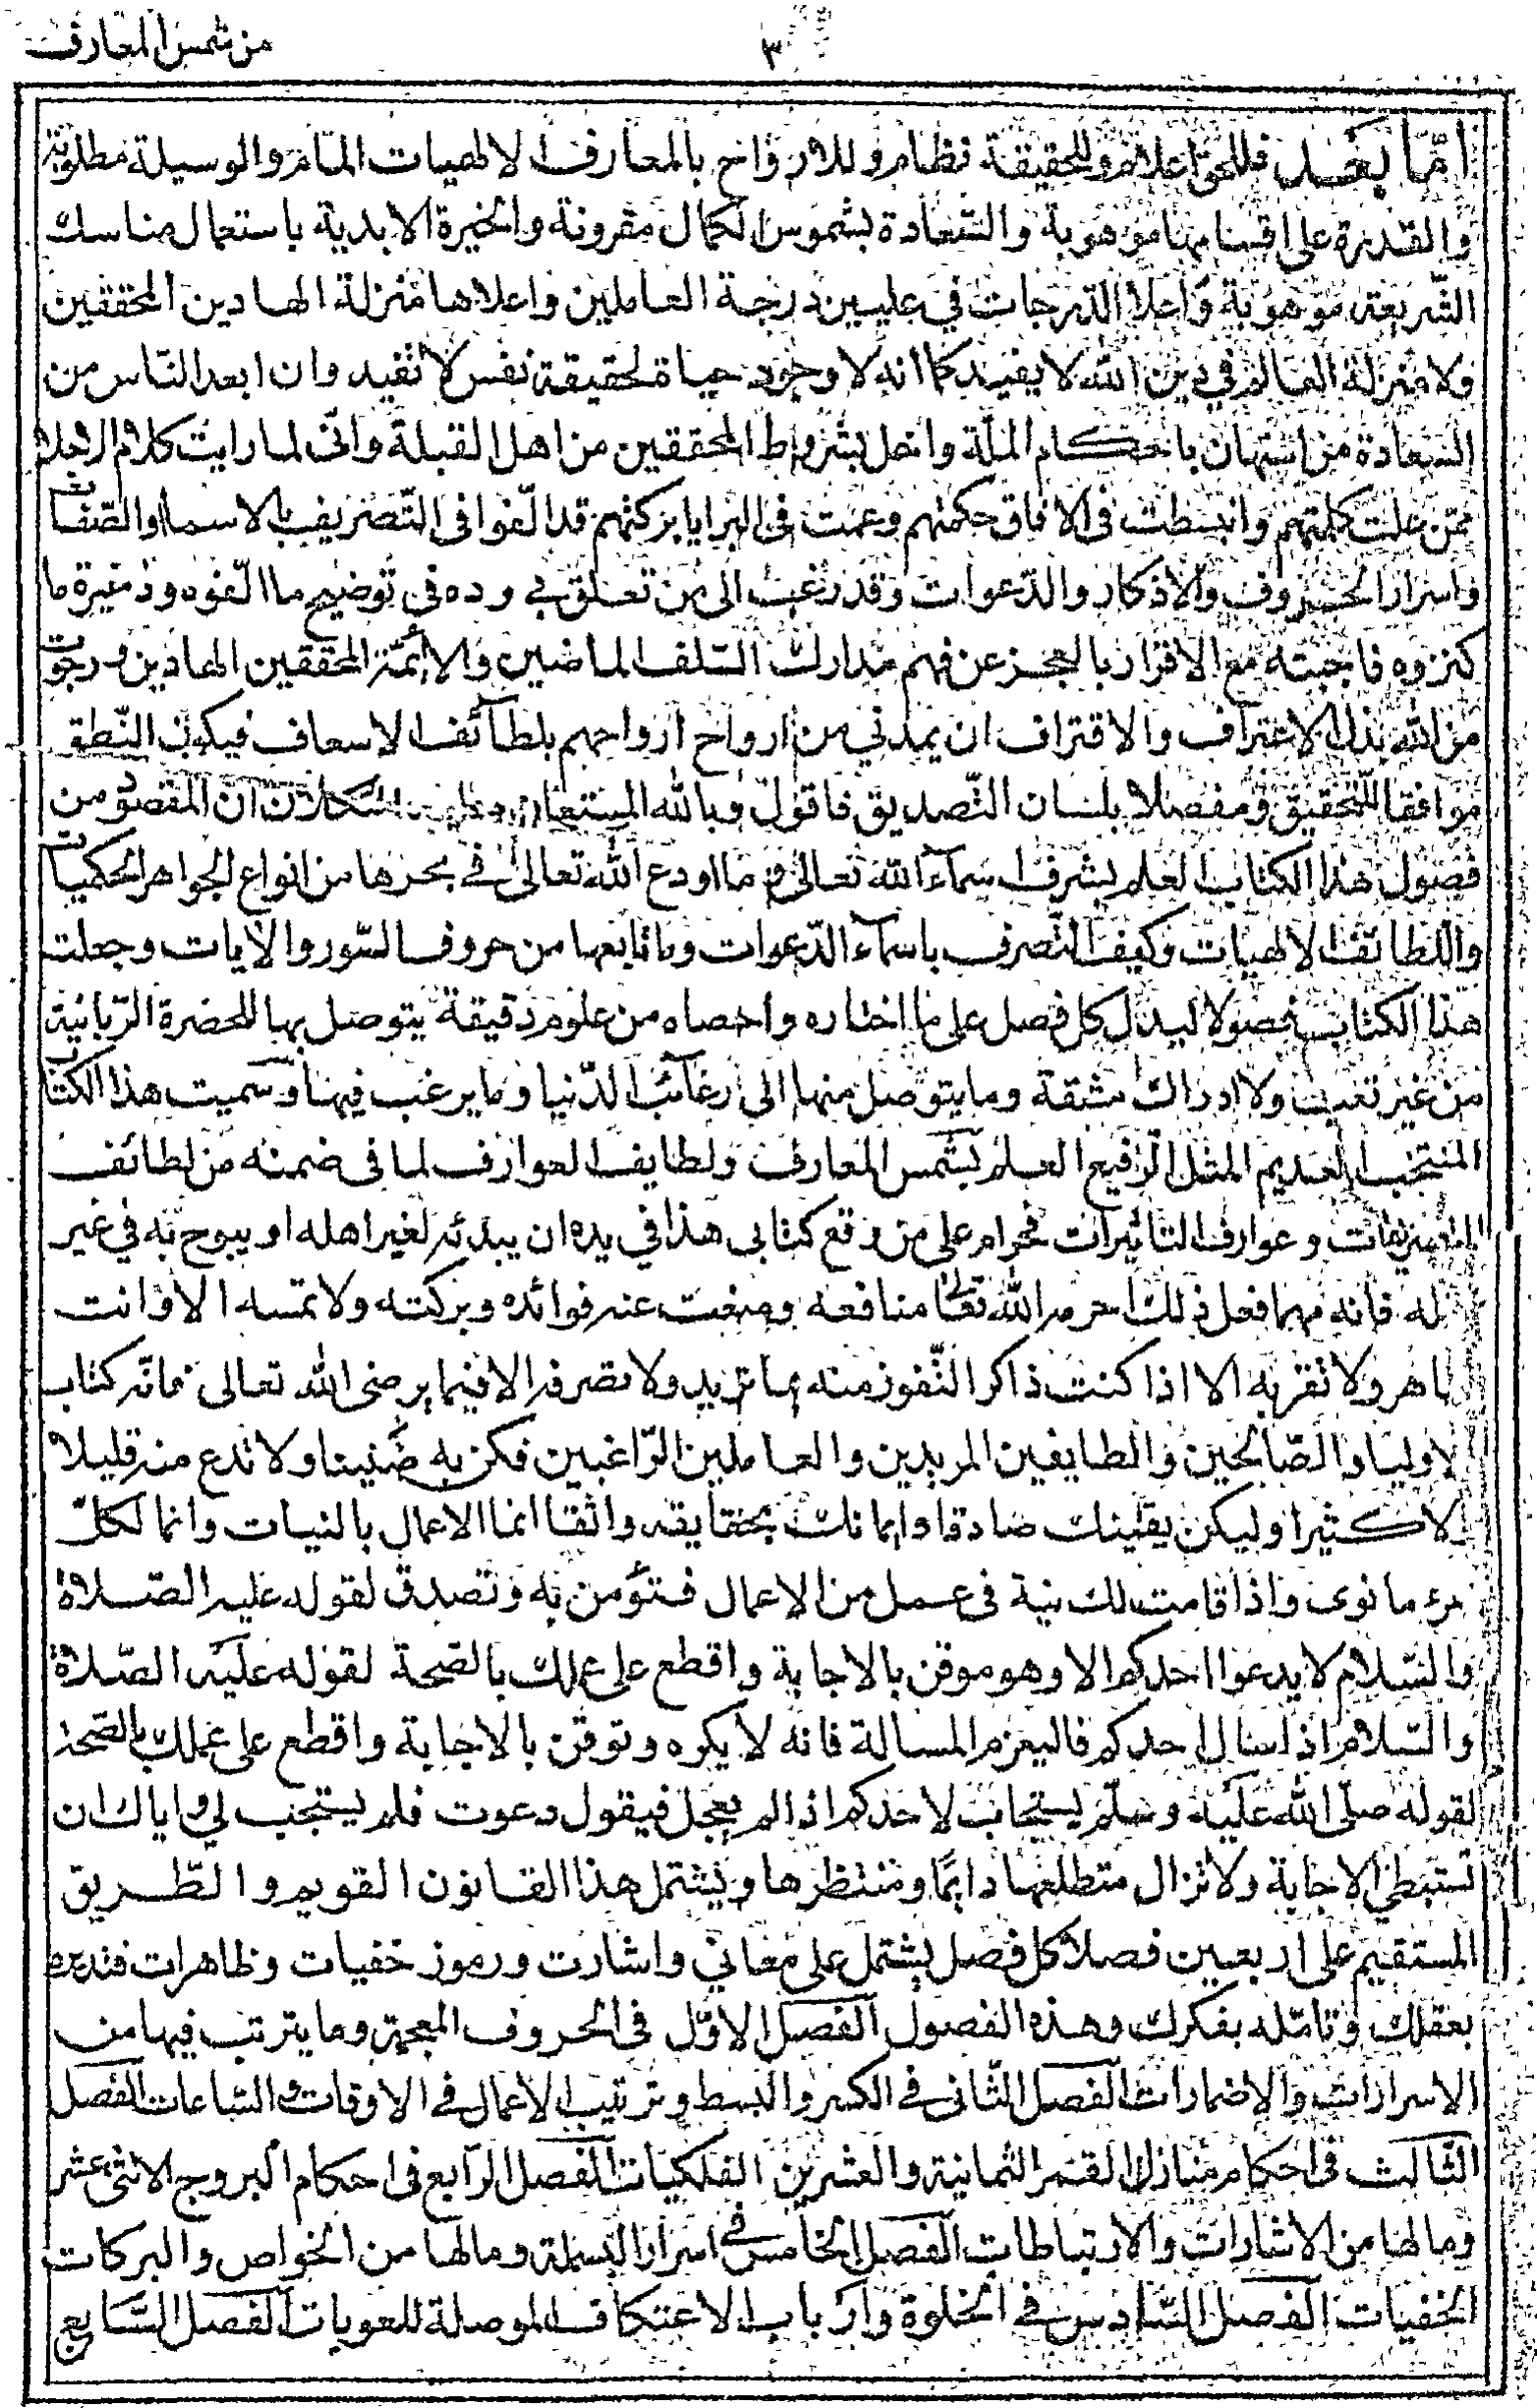 ٣
من شمس المعارف
امّا بعد فللحق اعلام وللحقيقة نظام وللارواح بالمعارف الالهيات المام والوسيلة مطلوبة
والقدرة على اقسامها موهوبة والسّعادة بشموس الكمال مقرونة والخيرة الابدية باستعمال مناسك
الشّريعة موهوبة واعلا الدّرجات في عليين درجة العاملين واعلاها منزلة الهادين المحققين
ولا منزلة العالم في دين الله لا يفيد كما انه لا وجود حياة لحقيقة نفس لا تفيد وان ابعد النّاس من
السّعادة من استهان باحكام الملّة واخل بشروط المحققين من اهل القبلة وانّى لما رايت كلام الاجلا
ممّن علت كلمتهم وانبسطت فى الافاق حكمتهم وعمت فى البرايا بركتهم قد الّفوا فى التّصريف بالاسما والصّفات
واسرار الحروف والاذكار والدّعوات وقد رغب الى من تعلق بى وده فى توضيح ما الّفوه وذخيرة ما
كنزوه فاجبته مع الاقرار بالعجز عن فهم مدارك السّلف الماضين والائمّة المحققين الهادين ورجوت
من الله بذلك الاعتراف والاقتراف ان يمدّني من ارواح ارواحهم بلطائف الاسعاف فيكون النّطق
موافقا للتّحقيق ومفصلا بلسان التّصديق فاقول وبالله المستعان وعليه التكلان ان المقصود من
فصول هذا الكتاب العلم بشرف اسماء الله تعالى وما اودع الله تعالى في بحرها من انواع الجواهر الحكميات
واللطائف الالهيات وكيف التّصرف باسماء الدّعوات وما تابعها من حروف السّور والايات وجعلت
هذا الكتاب فصولا ليدل كل فصل على ما اختاره واحصاه من علوم دقيقة يتوصل بها للحضرة الرّبانية
من غير تعب ولا ادراك مشقة وما يتوصل منها الى رغائب الدّنيا وما يرغب فيها وسميت هذا الكتاب
المنتخب العديم المثل الرّفيع العلم بشمس المعارف ولطايف العوارف لما فى ضمنه من لطائف
التصريفات وعوارف التاثيرات فحرام على من وقع كتابى هذا في يده ان يبدئه لغير اهله او يبوح به في غير
له فانه مهما فعل ذلك احرمه الله تعالى منافعه ومنعت عنه فوائده وبركته ولا تمسه الا وانت
اهر ولا تقربه الا اذا كنت ذاكرا لتّفوز منه بما تريد ولا تصرفه الا فيما يرضى الله تعالى فانّه كتاب
لاوليا والصّالحين والطايفين المريدين والعاملين الرّاغبين فكن به ضنينا ولا تدع منه قليلا
ولا كثيرا وليكن يقينك صادقا وايمانك بحقايقه واثقا انما الاعمال بالنيات وانما لكلّ
مرء ما نوى واذا قامت لك نية فى عمل من الاعمال فتؤمن به وتصدق لقوله عليه الصّلاة
والسّلام لا يدعوا احدكم الا وهو موقن بالاجابة واقطع على عملك بالصّحة لقوله عليه الصّلاة
والسّلام اذا سال احدكم فاليعزم المسالة فانه لا يكره وتوقن بالاجابة واقطع على عملك بالصّحة
لقوله صلّى الله عليه وسلّم يستجاب لاحدكم اذا لم يعجل فيقول دعوت فلم يستجب لي واياك ان
تستبطي الاجابة ولا تزال متطلعها دايمًا ومنتظرها ويشتمل هذا القانون القويم والطّريق
المستقيم على اربعين فصلا كل فصل يشتمل على معاني واشارت ورموز خفيات وظاهرات فتدبره
بعقلك وتامّله بفكرك وهذه الفصول الفصل الاوّل فى الحروف المعجمة وما يترتب فيها من
الاسرارات والاضمارات الفصل الثّانى في الكسر والبسط وترتيب الاعمال في الاوقات والسّاعات الفصل
الثّالث فى احكام منازل القمر الثمانية والعشرين الفلكيات الفصل الرّابع فى احكام البروج الاثنى عشر
وما لها من الاشارات والارتباطات الفصل الخامس في اسرار البسملة وما لها من الخواص والبركات
الخفيات الفصل السّادس في الخلوة وارباب الاعتكاف الموصلة للعويات الفصل السّابع